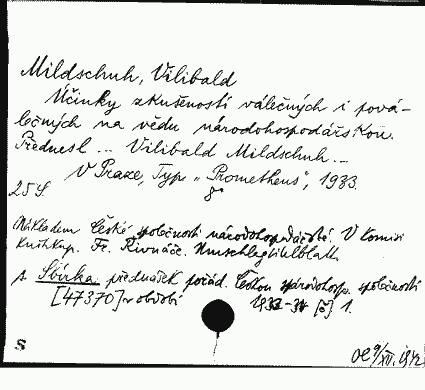 Mildschuh, Vilibald
Účinky zkušeností válečných i pová-
lečných na vědu národohospodářskou.
Přednesl ... Vilibald Mildschuh ...
V Praze, Typ. "Prometheus", 1933.
8°
25 S.
Nákladem České společnosti národohospodářské. V komisi
knihkup. Fr. Řivnáče. Umschlagtitelblatt.
s. Sbírka přednášek pořád. Českou národohosp. společností
[47370] v období 1933-34 [č] 1.
S